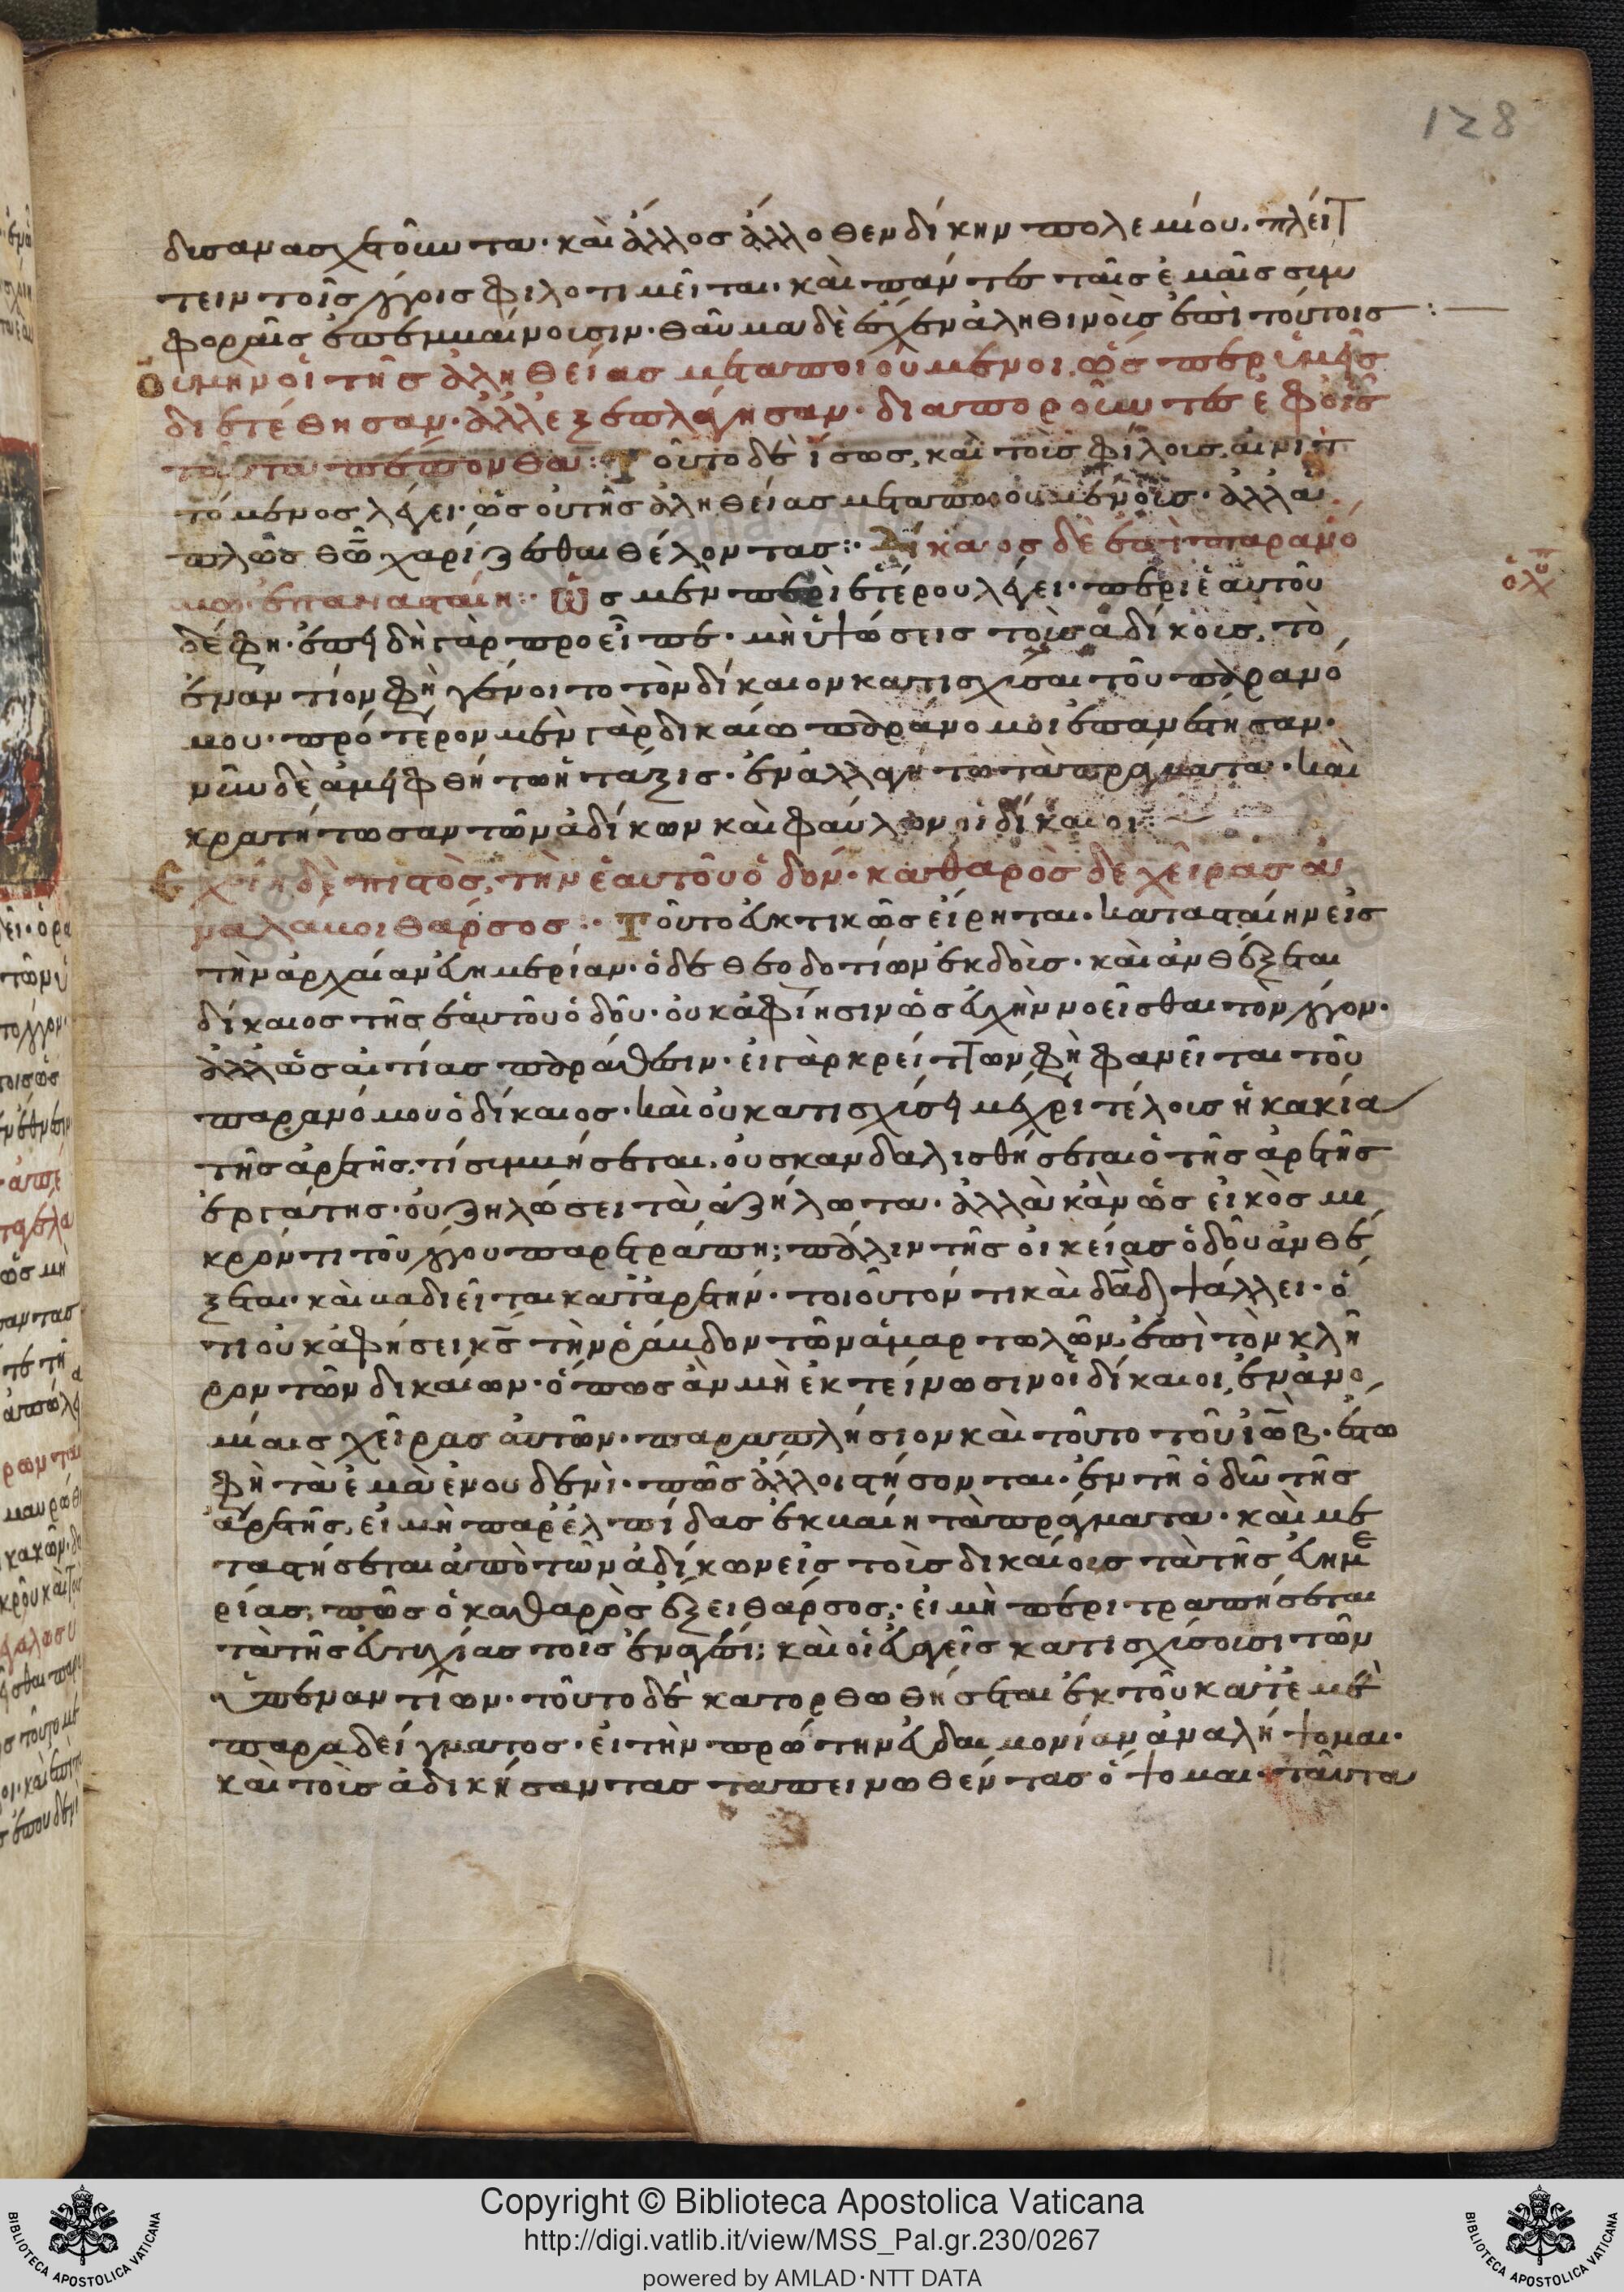 128
δισανασχετοῦντα· καὶ ἄλλος ἄλλοθεν δίκην πολεμίου. πλεῖτ
τειν τοῖς λόγοις φιλοτιμεῖται· καὶ πάντες ταῖς ἐμαῖς συμ
φοραῖς ἐπεμβαίνουσιν· θαῦμα δὲ ἀληθινοῖς ἐπὶ τούτοις :—
Οὐ μὴν οἱ τῆς ἀληθείας μεταποιούμενοι, ὡς περὶ ἐμὲ
διετέθησαν· ἀλλ' ἐξεπλάγησαν· διαποροῦντες ἐφ' οἷς
ταῦτα πέπονθα :· Τοῦτο δὲ ἴσως, καὶ τοῖς φίλοις, αἰνιτ
τόμενος λέγει· ὡς οὐ τῆς ἀληθείας μεταποιουμένοις· ἀλλ' ἁ
πλῶς θῶ χαρίζεσθαι θέλοντας :· Δίκαιος δὲ ἐπὶ παρανό
μῳ ἐπανασταίη :· Ὡς μὲν περὶ ἑτέρου λέγει· περὶ ἑαυτοῦ
ὀλυ
δέ φη· ἐπειδὴ γὰρ προεῖπε· μὴ ὑψώσεις τοῖς ἀδίκοις, τὸ
ἐναντίον φὴ γένοιτο τὸν δίκαιον κατισχύσαι τοῦ παρανό
μου· πρότερον μὲν γὰρ δικαίω παράνομοι ἐπανέστησαν·
νῦν δὲ ἀμειφθήτω ἡ τάξις· ἐναλλαγήτω τὰ πράγματα· καὶ
κρατήτωσαν τῶν ἀδίκων καὶ φαύλων οἱ δίκαιοι :—
Σχοίη δὲ πιστὸς, τὴν ἑαυτοῦ ὁδόν· καθαρὸς δὲ χεῖρας ἀ
ναλάβοι θάρσος :· Τοῦτο εὐκτικῶς εἴρηται· κατασταίην εἰς
τὴν ἀρχαίαν εὐημερίαν· ὁ δὲ θεοδοτίων ἐκδοὺς· καὶ ἀνθέξεται
δίκαιος τῆς ἑαυτοῦ ὁδοῦ· οὐκ ἀφίησιν ὡς εὐχὴν νοεῖσθαι τὸν λόγον·
ἀλλ' ὡς αἰτίας παράθεσιν· εἰ γὰρ κρείττων φὴ φανεῖται τοῦ
παρανόμου ὁ δίκαιος· καὶ οὐ κατισχύσει μέχρι τέλους ἡ κακία
τῆς ἀρετῆς, τί συμβήσεται. οὐ σκανδαλισθήσεται ὁ τῆς ἀρετῆς
ἐργάτης· οὐ ζηλώσει τὰ ἀζήλωτα· ἀλλὰ κἂν ὡς εἰκὸς μι
κρόν τι τοῦ λόγου παρετράπη; πάλιν τῆς οἰκείας ὁδοῦ ἀνθέ
ξεται· καὶ βαδιεῖται κατ' ἀρετήν· τοιοῦτόν τι καὶ δᾱδ ψάλλει· ὅ
τι οὐκ ἀφήσει κ̅ς̅ τὴν ῥάβδον τῶν ἁμαρτωλῶν, ἐπὶ τὸν κλῆ
ρον τῶν δικαίων· ὅπως ἂν μὴ ἐκτείνωσιν οἱ δίκαιοι, ἐν ἀνο
μίαις χεῖρας αὐτῶν· παραπλήσιον καὶ τοῦτο τοῦ ἰώβ· ἔστω
φὴ τὰ ἐμὰ ἐν οὐδενί· πῶς ἄλλοι στήσονται· ἐν τῆ ὁδῶ τῆς
ἀρετῆς, εἰ μὴ παρ' ἐλπίδας ἐκβαίη τὰ πράγματα· καὶ με
ταστήσεται ἀπὸ τῶν ἀδίκων εἰς τοὺς δικαίους τὰ τῆς εὐημε
ρίας, πῶς ὁ καθαρὸς ἕξει θάρσος, εἰ μὴ περιτραπήσεται
τὰ τῆς εὐτυχίας τοῖς ἐναγέσι; καὶ οἱ εὐαγεῖς κατισχύσουσι τῶν
ὑπεναντίων· τοῦτο δὲ κατορθωθήσεται ἐκ τοῦ κατ' ἐμὲ
παραδείγματος· εἰ τὴν πρώτην εὐδαιμονίαν ἀναλήψομαι·
καὶ τοὺς ἀδικήσαντας ταπεινωθέντας ὄψομαι· ταῦτα
Copyright © Biblioteca Apostolica Vaticana
http://digi.vatlib.it/view/MSS_Pal.gr.230/0267
powered by AMLAD·NTT DATA
BIBLIOTECA APOSTOLICA VATICANA
BIBLIOTECA APOSTOLICA VATICANA